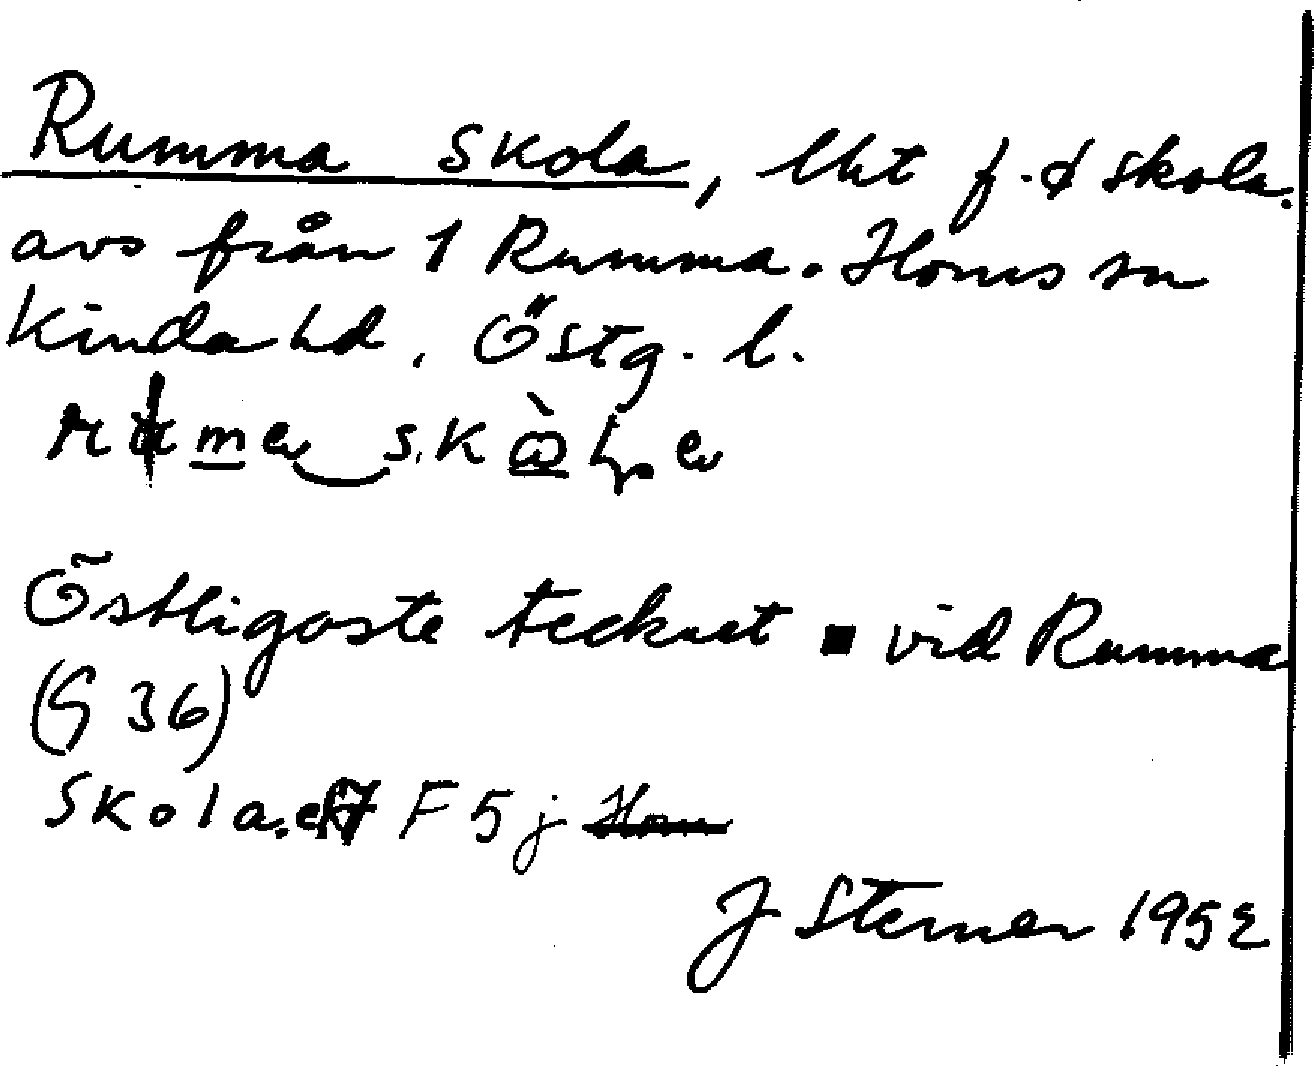 Rumma skola, lht f.d skola.
avs från 1 Rumma. Horns sn
Kinda hd, Östg. l.
Östligaste tecknet ▪ vid Rumma
(G 36)
Skola. F5j Horn
J Sterner 1952